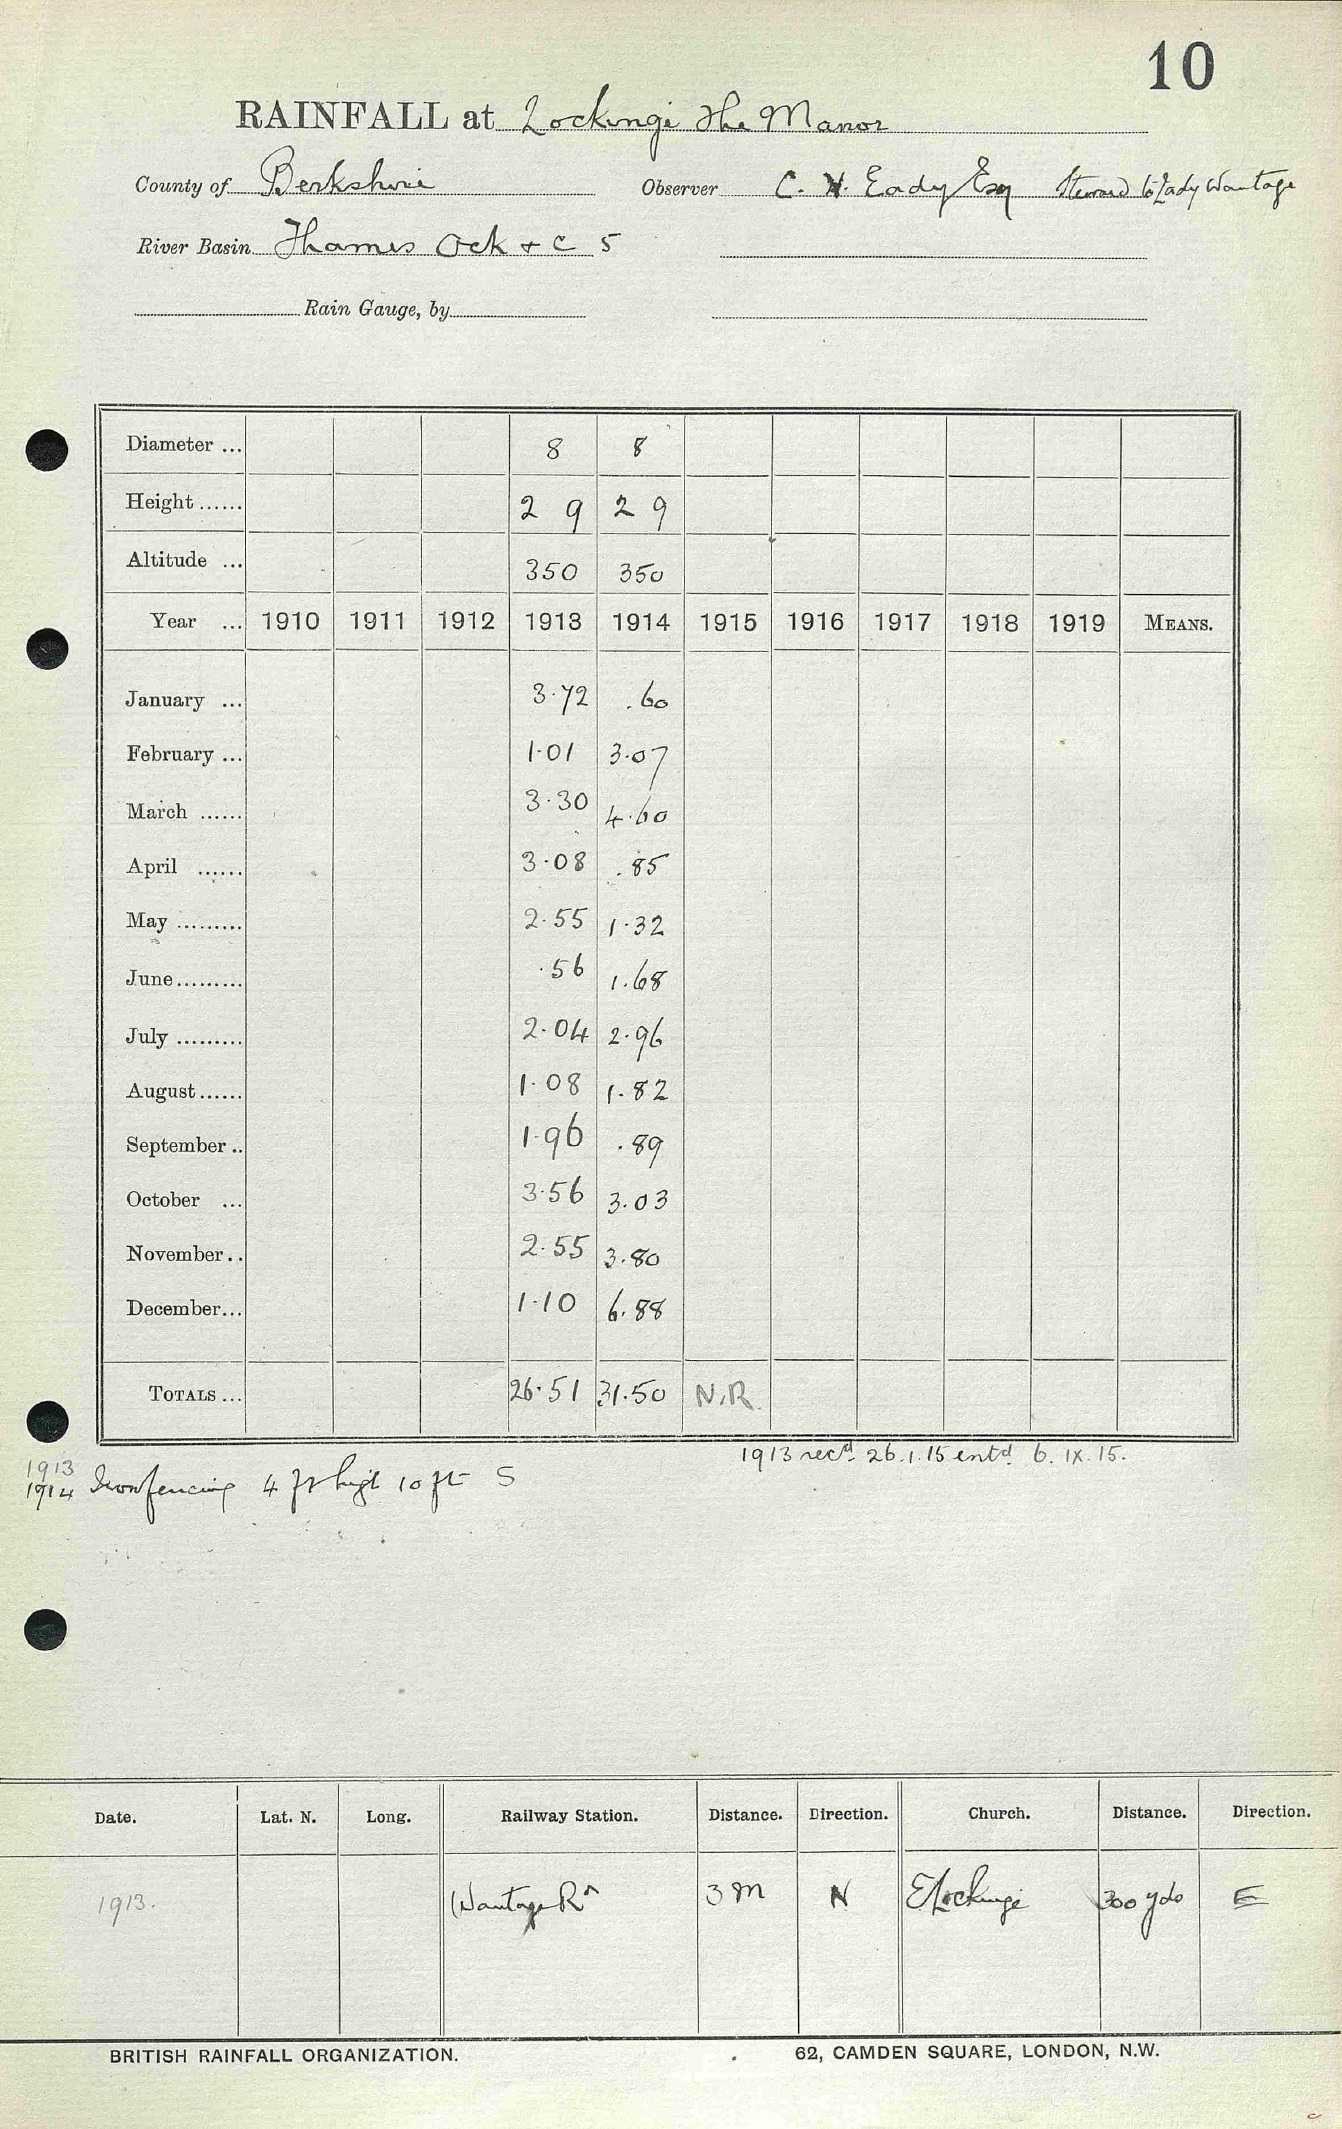 10
RAINFALL at Lockinge The Manor
County of Berkshire Observer C. H. Eady Esq Steward to Lady Wantage
River Basin Thames Ock + c 5
Rain Gauge, by
Diameter ... 8 8
Height...... 2 9 2 9
Altitude ... 350 350
Year ... 1910 1911 1912 1913 1914 1915 1916 1917 1918 1919 MEANS.
January ... 3.72 .60
February ... 1.01 3.07
March ...... 3.30 4.60
April ...... 3.08 .85
May ......... 2.55 1.32
June......... .56 1.68
July ......... 2.04 2.96
August...... 1.08 1.82
September .. 1.96 .89
October ... 3.56 3.03
November.. 2.55 3.80
December... 1.10 6.88
TOTALS ... 26.51 31.50 N.R.
1913 recd 26.1.15 entd 6.IX.15.
1913
1914 Iron fencing 4 ft high 10 ft S
Date. Lat. N. Long. Railway Station. Distance. Direction. Church. Distance. Direction.
1913. Wantage Rd 3 M N E Lockinge 300 yds E
BRITISH RAINFALL ORGANIZATION. 62, CAMDEN SQUARE, LONDON, N.W.